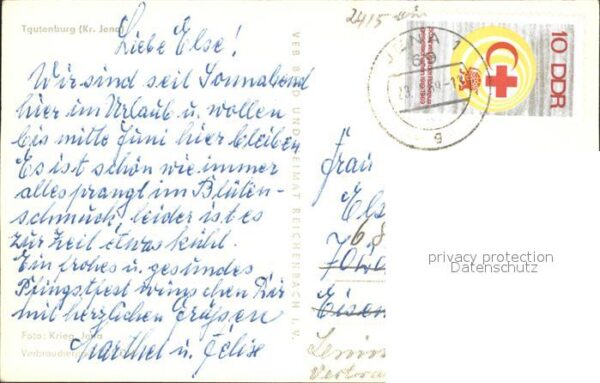 Tautenburg (Kr. Jena)
Liebe Else!
Wir sind seit Sonnabend
hier im Urlaub u. wollen
bis mitte Juni hier bleiben
Es ist schön wie immer
alles prangt im Blüten-
schmuck, leider ist es
zur Zeit etwas kühl.
Ein frohes u. gesundes
Pfingstfest wünschen Dir
mit herzlichen Grüßen
Marthel u.
Foto: Krien, Jena
Verbraucherpreis
VEB BILD UND HEIMAT REICHENBACH I. V.
2415
JENA 1
69
g
10 DDR
Frau
Els
68
70
Eisen
privacy protection
Datenschutz